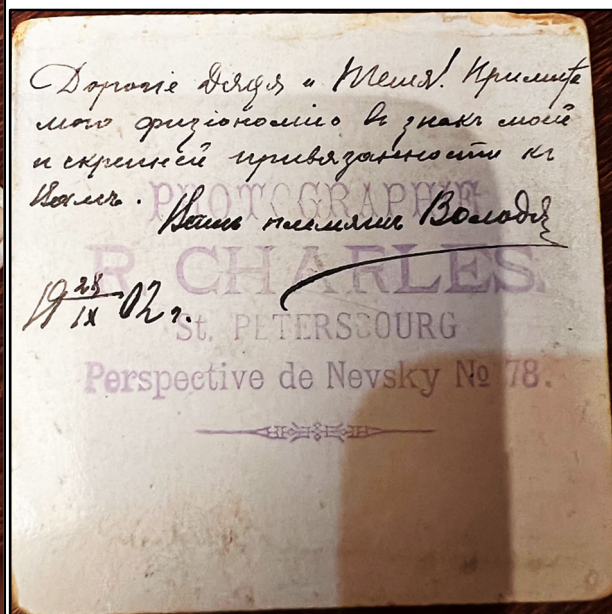 Дорогіе Дядя и Тетя! Примите
мою физіономію въ знакъ моей
искренней привязанности къ
Вамъ.
Вашъ племяшъ Володя
19 28/IX 02 г.
PHOTOGRAPHIE
R. CHARLES.
St. PETERSBOURG
Perspective de Nevsky № 78.